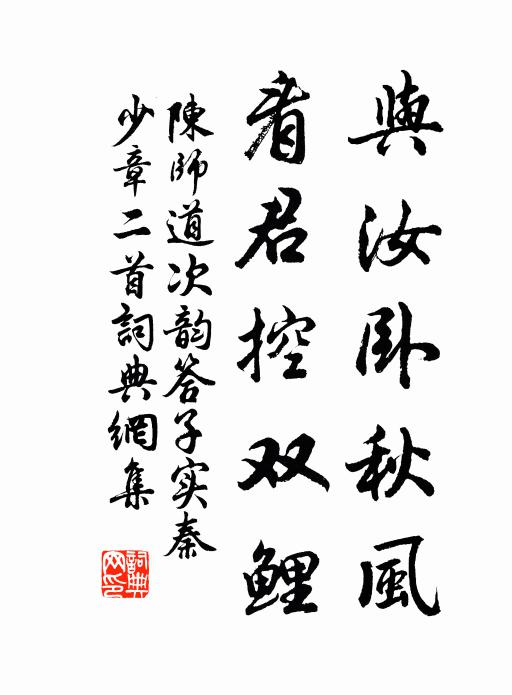 與汝卧秋風
看君控双鲤
陳師道次韵答子实秦
少章二首詞典網集
詞典
网印